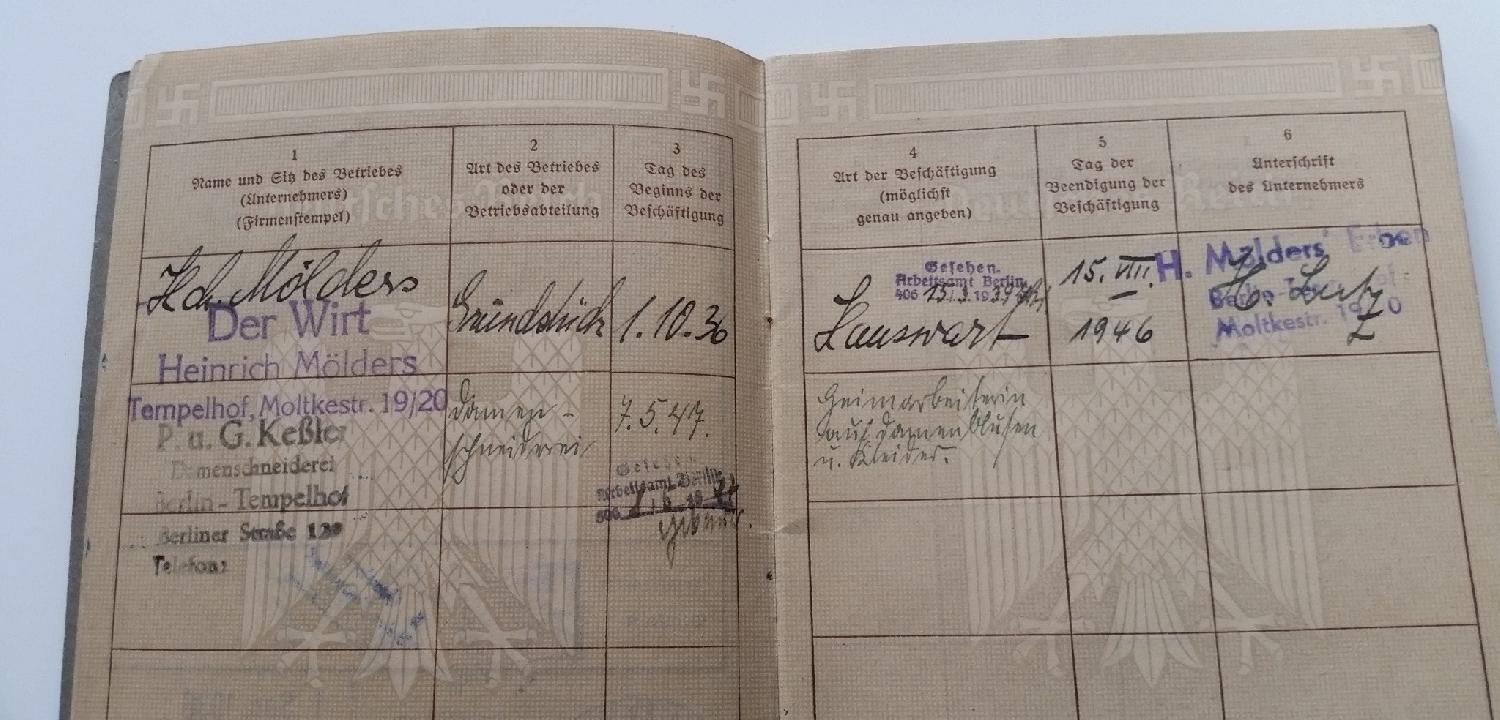 1
Name und Sitz des Betriebes
(Unternehmers)
(Firmenstempel)
2
Art des Betriebes
oder der
Betriebsabteilung
3
Tag des
Beginns der
Beschäftigung
Hch. Mölders
Der Wirt
Heinrich Mölders
Tempelhof, Moltkestr. 19/20
Grundstück
1.10.36
P. u. G. Keßler
Damenschneiderei
Berlin - Tempelhof
Berliner Straße 120
Telefon:
Damen-
schneiderei
7.5.47.
Gesehen
Arbeitsamt Berlin
506
4
Art der Beschäftigung
(möglichst
genau angeben)
5
Tag der
Beendigung der
Beschäftigung
6
Unterschrift
des Unternehmers
Gesehen.
Arbeitsamt Berlin
406
Hauswart
15. VIII.
1946
H. Mölders' Erben
Moltkestr.
Heimarbeiterin
auf Damenblusen
u. Kleider.